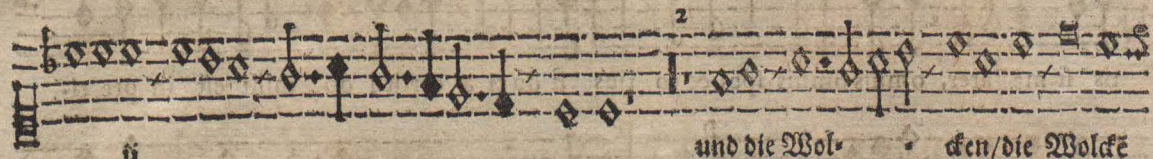 2
ij und die Wol- - cken/die Wolckē